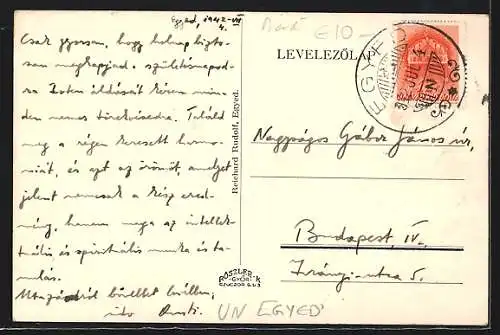 Egyed, 1942-VII
4.
Csak gyorsan, hogy holnap biztosan megkapjad.
születésnapodra Isten áldását kérem minden
nemes törekvésedre. Találd
meg a régen keresett harmoniát,
és azt az örömöt, amelyet
jelent nemcsak a kész eredmény,
hanem maga az intellektuális
és spirituális munka és tanulás.
Utazásodról bővebbet levélben,
üdv
Reichard Rudolf, Egyed.
RÖSZLER-K
GYŐR
E10-
LEVELEZŐLAP
EGYED
942 JUL. 4
Nagyságos Gábor János úr,
Budapest, IV.
Irányi-utca 5.
UN EGYED